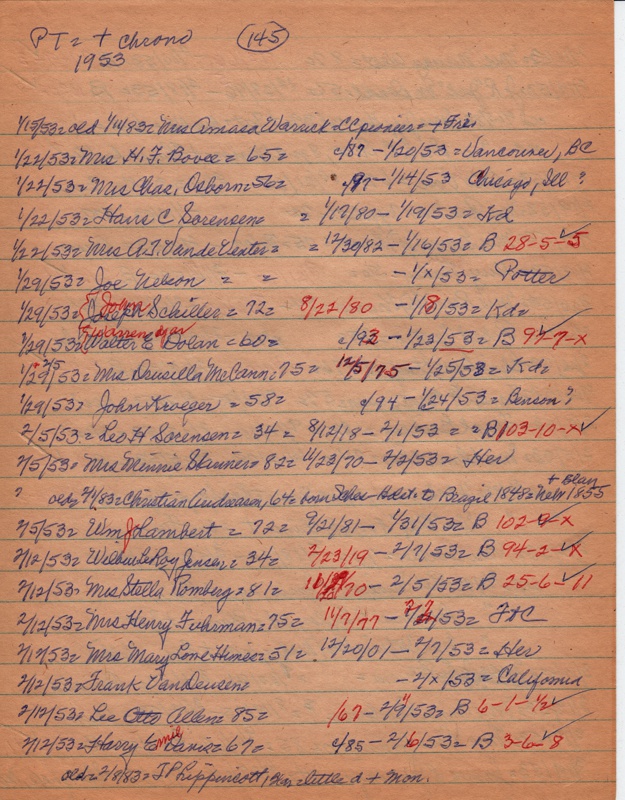 PT = + chrono 145
1953
1/15/53 = old 1/11/83 = Mrs Amasa Warrick = CC pioneer = +
1/22/53 = Mrs H. F. Bovee = 65 = c/87 - 1/20/53 = Vancouver, BC
1/22/53 = Mrs Chas, Osborn = 56 = c/97 - 1/14/53 Chicago, Ill ?
1/22/53 = Hans C Sorensen = = 1/17/80 - 1/19/53 = Kd
1/22/53 = Mrs A.J. VandeVenter = = 12/30/82 - 1/16/53 = B 28-5-5
1/29/53 = Joe Nelson = = - 1/x/53 = Potter
1/29/53 = John Schiller = 72 = 8/22/80 - 1/8/53 = Kd =
1/29/53 = Walter E Dolan = 60 = c/93 - 1/23/53 = B 97-7-x
1/29/53 = 2/5 Mrs Drusilla McCann = 75 = 12/5/75 - 1/25/53 = Kd =
1/29/53 = John Kroeger = 58 = c/94 - 1/24/53 = Benson ?
2/5/53 = Leo H Sorensen = 34 = 8/12/18 - 2/1/53 = = B 103-10-x
2/5/53 = Mrs Minnie = 82 = 4/23/70 - 2/2/53 = Her
? old = 2/1/83 = Christian Andreasen, 64 = born to 1848 = Nebr 1855 + Blair
2/5/53 = Wm J Lambert = 72 = 9/21/81 - 1/31/53 = B 102-9-x
2/12/53 = Wilbur LeRoy Jensen = 34 = 2/23/19 - 2/7/53 = B 94-2-x
2/12/53 = Mrs Stella Romberg = 81 = /70 - 2/5/53 = B 25-6-11
2/12/53 = Mrs Henry Fuhrman = 75 = 11/7/77 - /53 = FtC
2/12/53 = Mrs Mary Lone Himes = 51 = 12/20/01 - 2/7/53 = Her
2/12/53 = Frank VanDeusen = - 2/x/53 = California
2/12/53 = Lee Otto Allen = 85 = /67 - 2/9/53 = B 6-1-½
2/12/53 = Harry Davis = 67 = c/85 - 2/6/53 = B 3-6-8
old = 2/8/83 = J P Lippincott, Blair = little d + Mon.